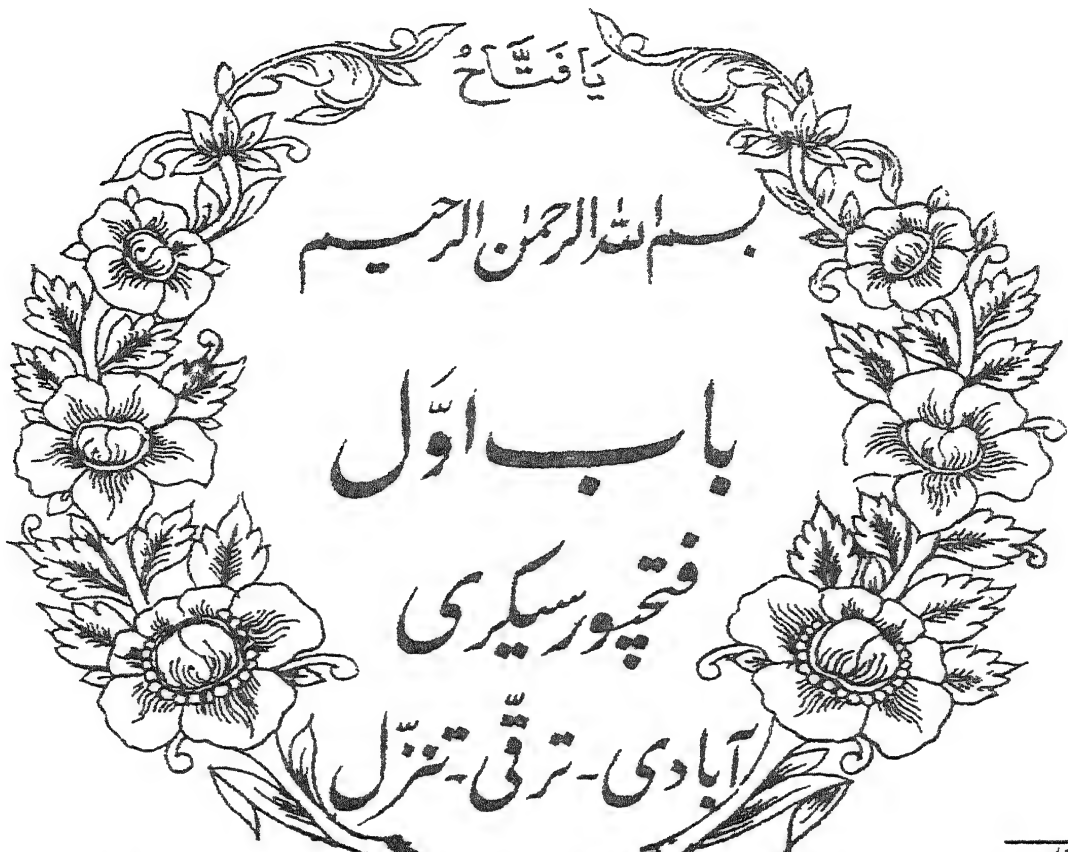 یَا فَتَّاحُ
بسم اللہ الرحمٰن الرحیم
باب اوّل
فتحپور سیکری
آبادی - ترقّی - تنزّل